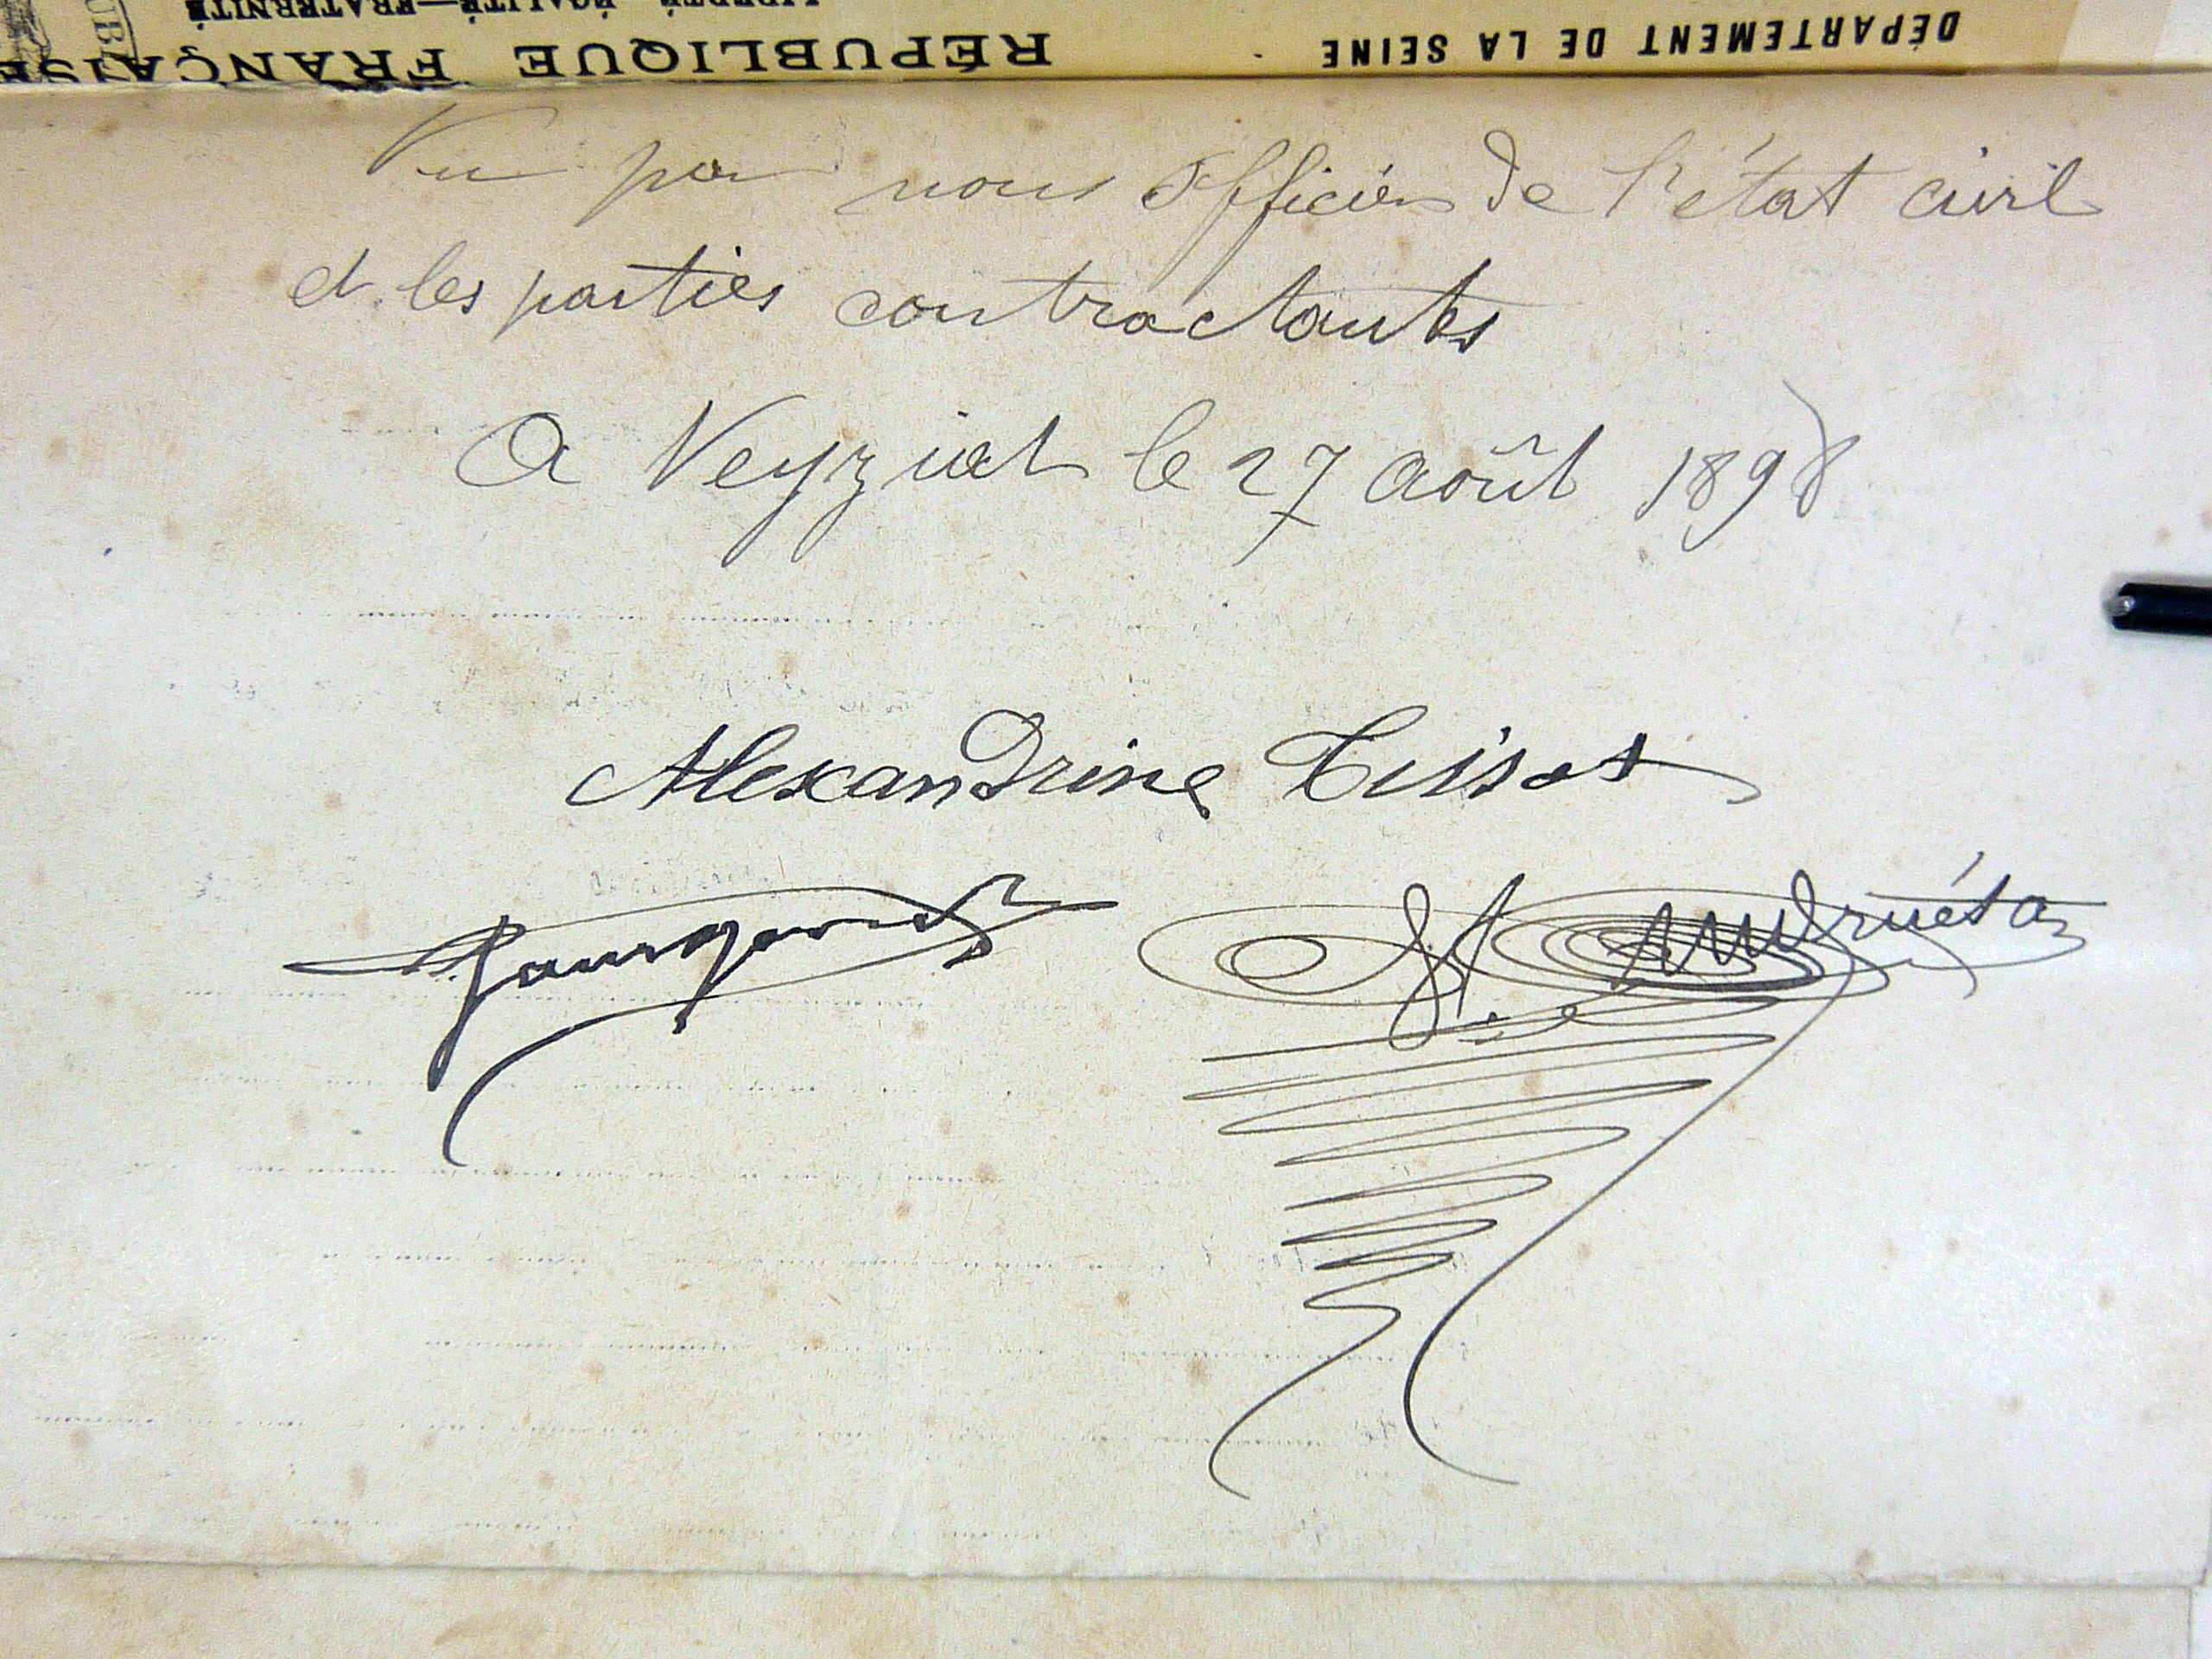 LIBERTÉ ÉGALITÉ—FRATERNITÉ
RÉPUBLIQUE FRANÇAISE
DÉPARTEMENT DE LA SEINE
Vu par nous Officier de l'état civil
et les parties contractantes
A Veyziat le 27 août 1898
Alexandrine Tissot